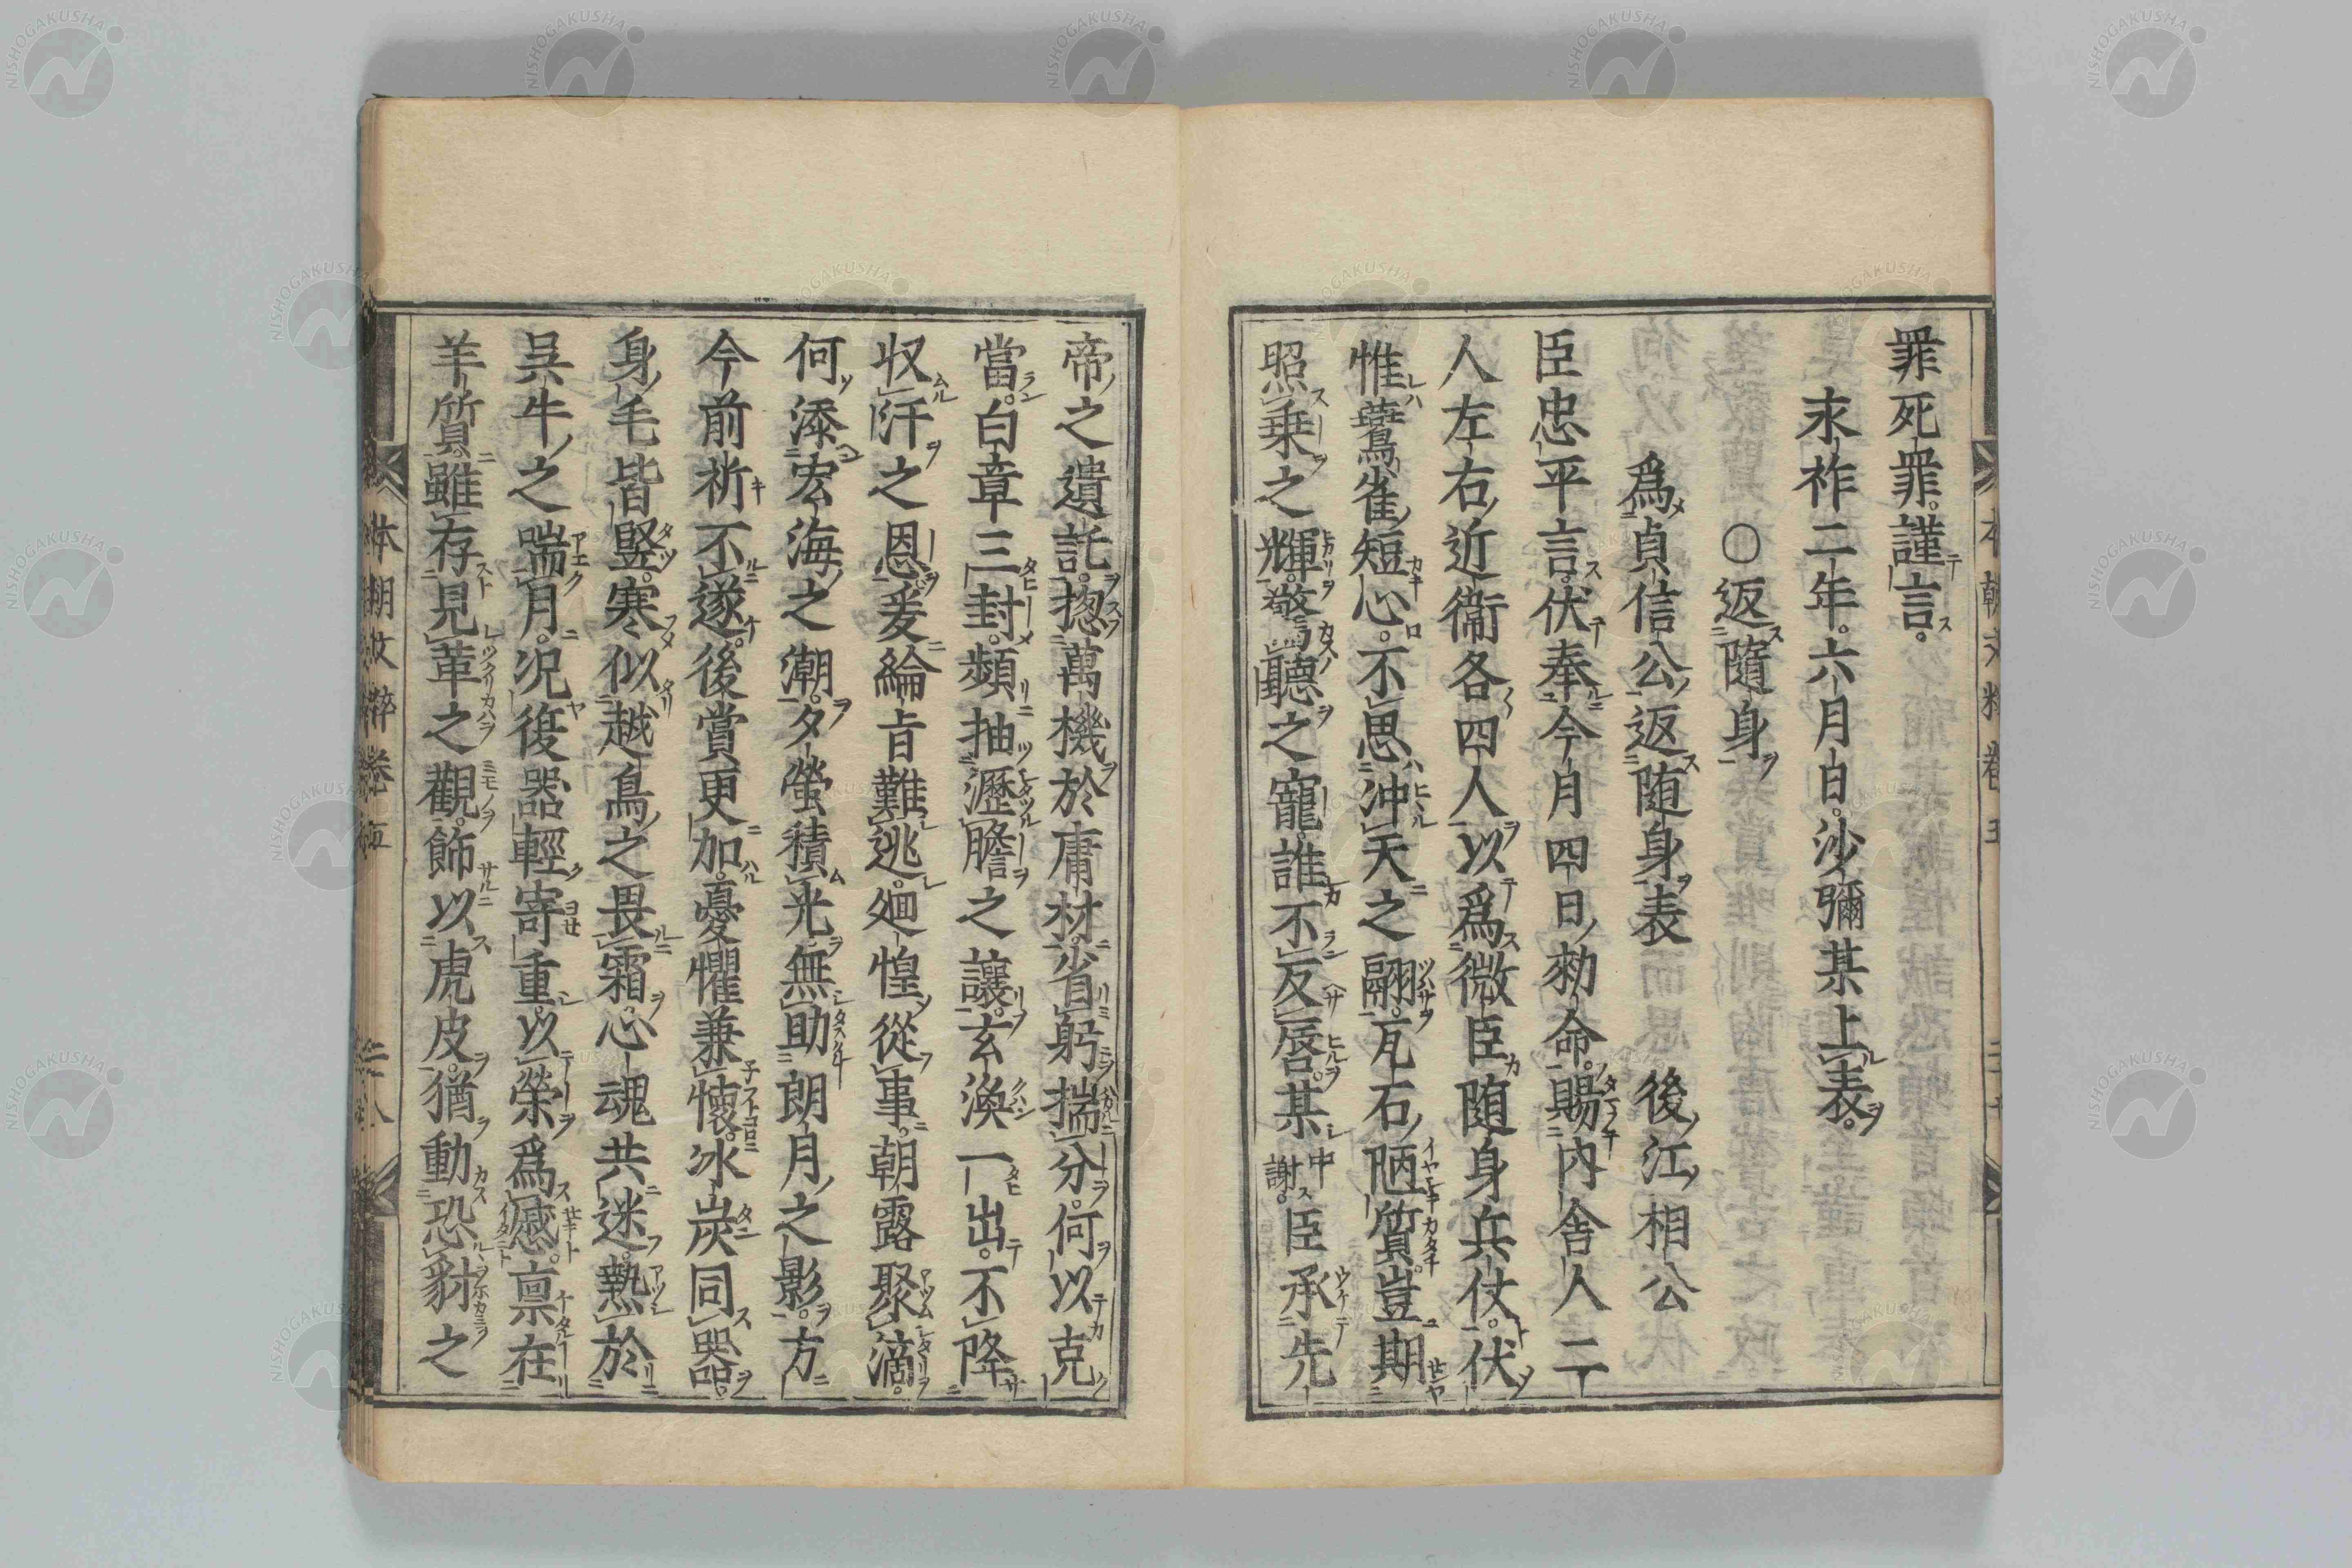 罪死罪。謹言。
永祚二年。六月日。沙彌某上表。
○返隨身
爲貞信公返随身表　後江相公
臣忠平言。伏奉今月四日勅命。賜内舎人二
人左右近衞各四人以爲微臣随身兵仗。伏
惟鷰雀短心。不思沖天之翮。瓦石陋質豈期
照乗之輝。驚聽之寵。誰不反唇。某中謝。臣承先
帝之遺託。揔萬機於庸材。省躬揣分。何以克
當。白章三封。頻抽瀝膽之讓。玄渙一出。不降
収汗之恩。爰綸旨難逃。廻惶從事。朝露聚滴。
何添宏海之潮。夕螢積光。無助朗月之影。方
今前祈不遂。後賞更加。憂懼兼懷。冰炭同器。
身毛皆竪。寒似越鳥之畏霜。心魂共迷。熱於
呉牛之喘月。况復器輕寄重。以榮爲慼。禀在
羊質。雖存見革之觀。飾以虎皮。猶動恐豺之
本朝文粹卷五